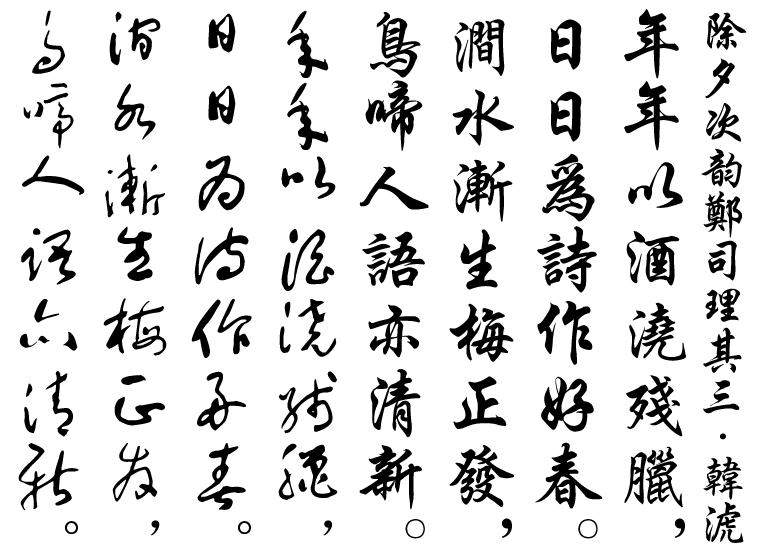 除夕次韵鄭司理其三·韓淲
年年以酒澆殘臘，
日日爲詩作好春。
澗水漸生梅正發，
鳥啼人語亦清新。
年年以酒澆殘臘，
日日爲詩作好春。
澗水漸生梅正發，
鳥啼人語亦清新。